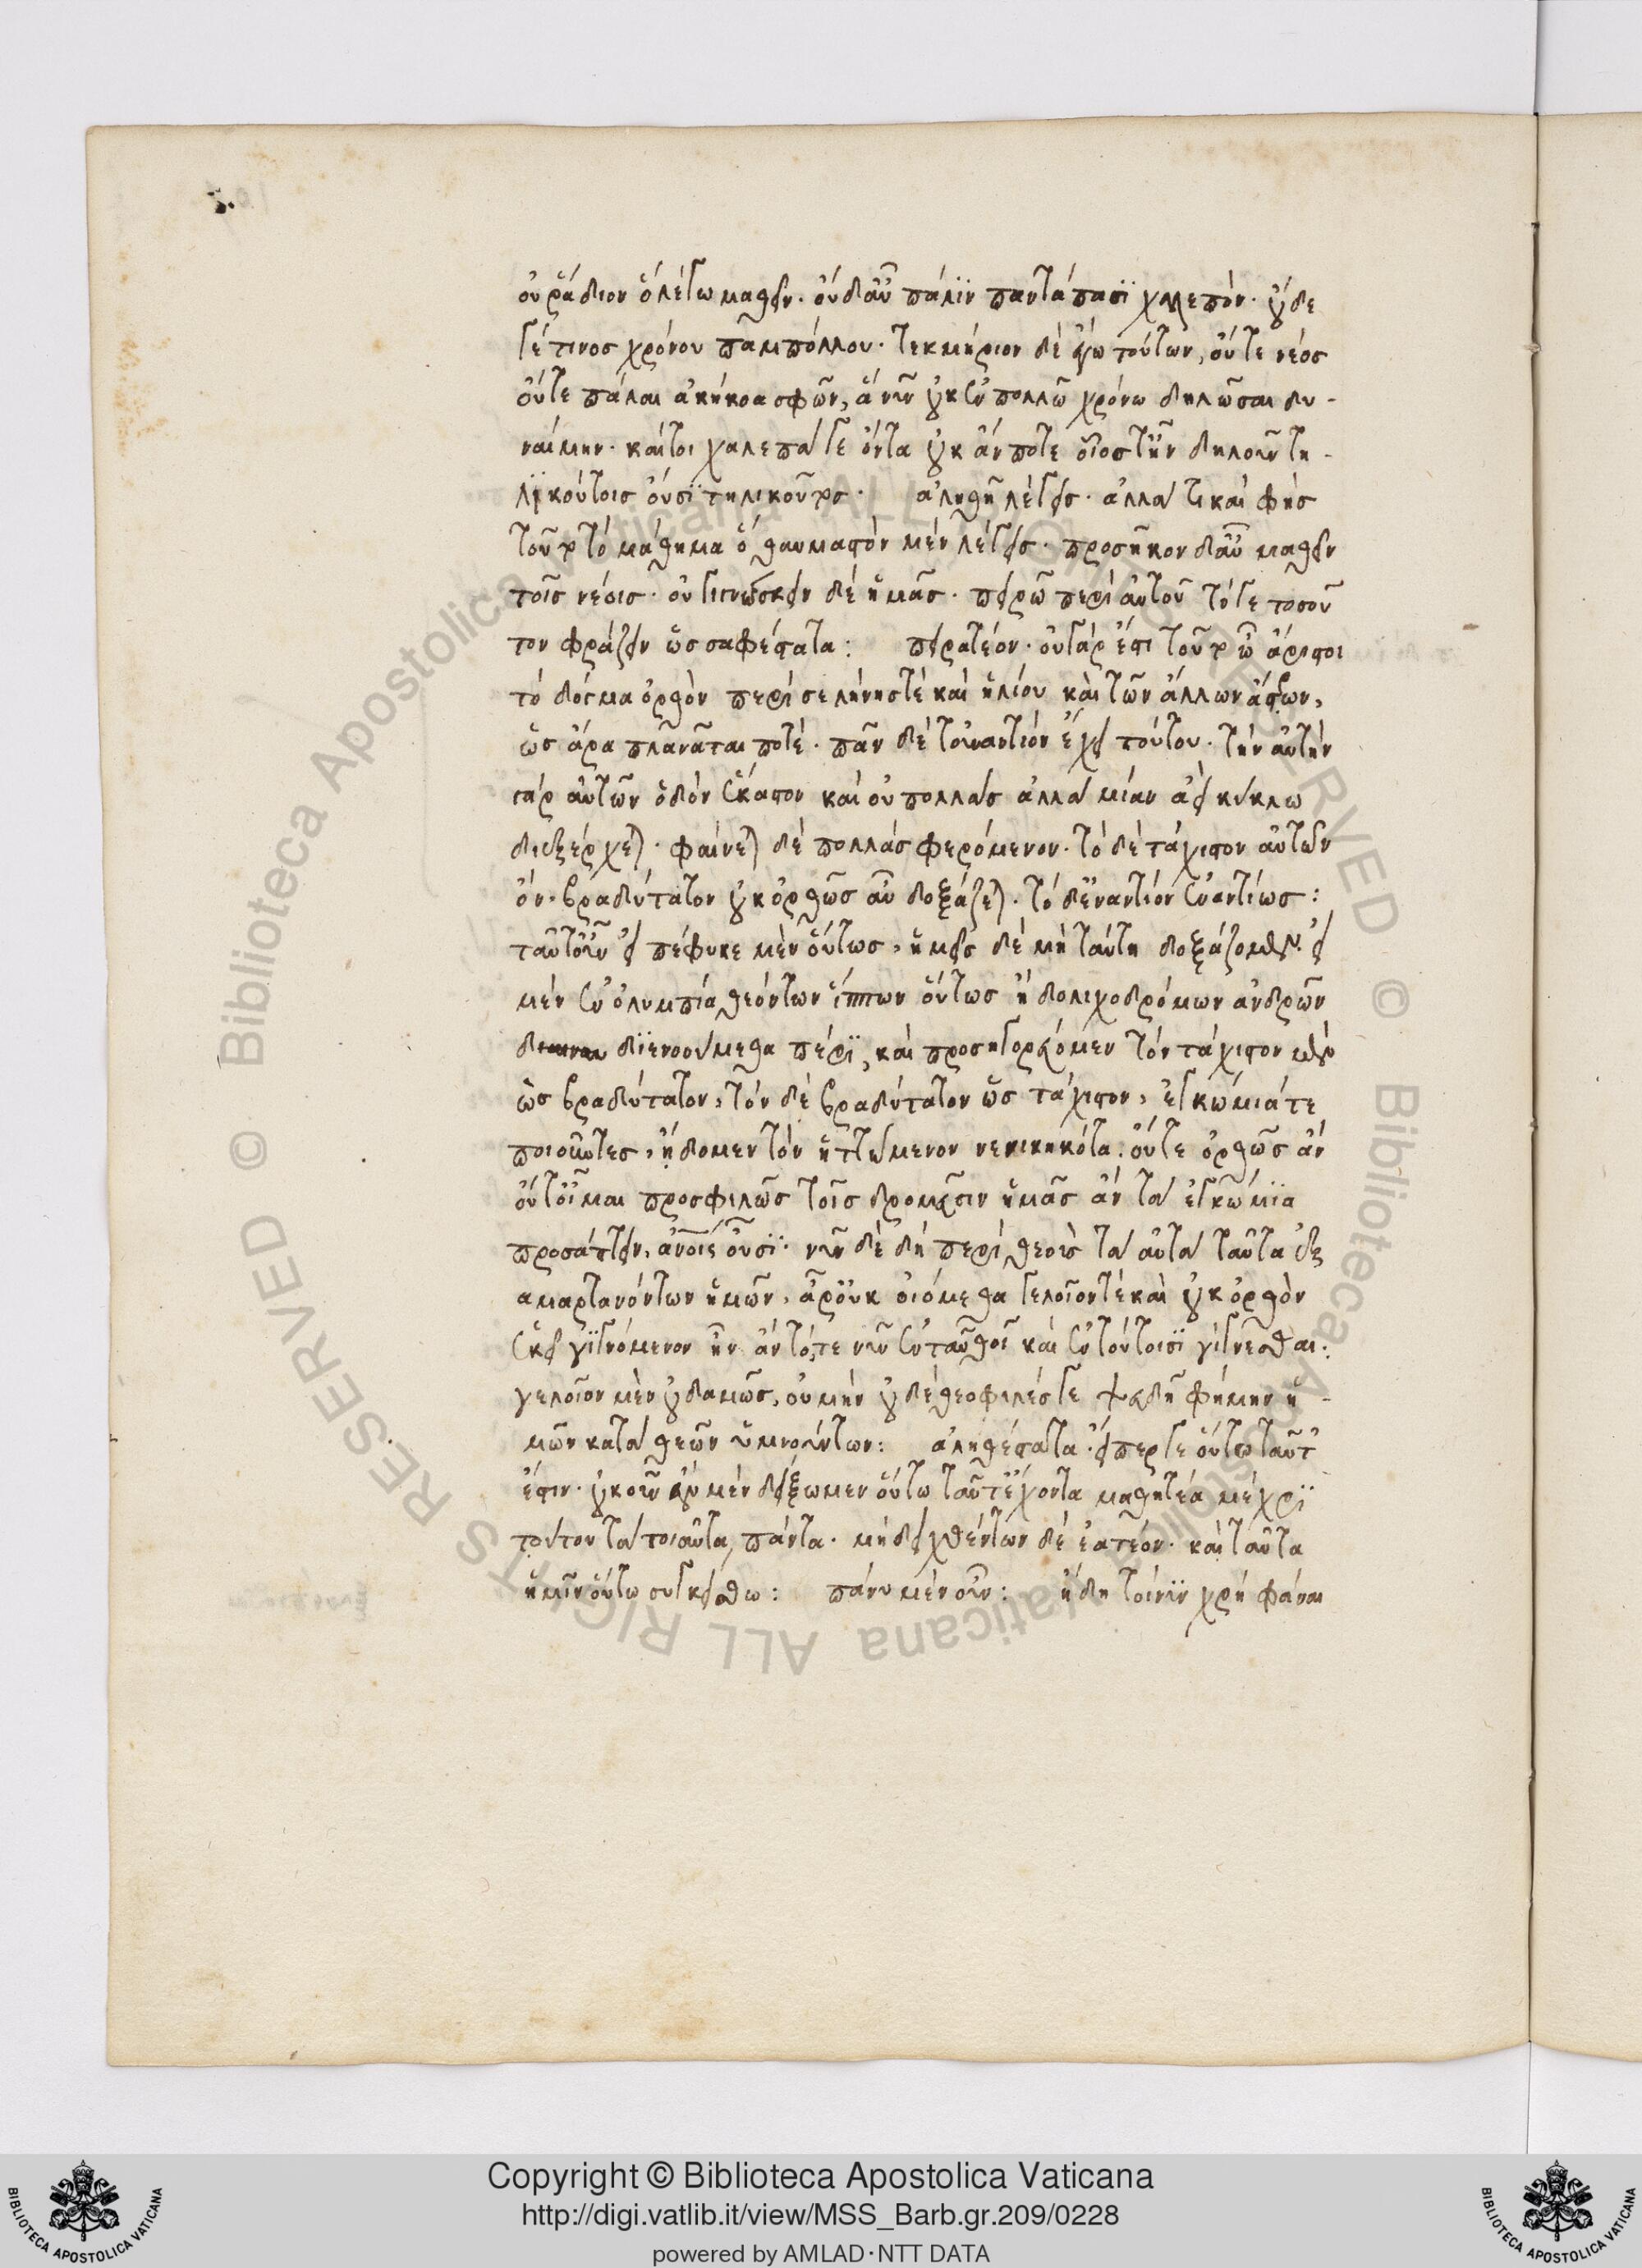 οὐ ῥάδιον ὃ λέγω μαθεῖν· οὐδ' αὖ πάλϊν παντάπασϊ χαλεπὸν· οὐδέ
γέ τινος χρόνου παμπόλλου· τεκμήριον δέ ἐγὼ τούτων, οὔτε νέος
οὔτε πάλαι ἀκήκοα σφῶν, ἃ νῦν οὐκ ἐν πολλῶ χρόνω δηλῶσαι δυ-
ναίμην· καίτοι χαλεπά γε ὄντα οὐκ ἄν ποτε οἷός τ' ἦν δηλοῦν τη-
λϊκούτοις οὖσϊ τηλικοῦτος· ἀληθῆ λέγεις· ἀλλὰ τί καὶ φὴς
τοῦτο τό μάθημα ὃ θαυμαστὸν μὲν λέγεις· προσῆκον δ' αὖ μαθεῖν
τοῖς νέοις· οὐ γιγνώσκειν δέ ἡμᾶς· πειρῶ περὶ αὐτοῦ τό γε τοσοῦ
τον φράζειν ὡς σαφέστατα: πειρατέον· οὐ γάρ ἐστι τοῦτο ὦ ἄριστοι
τό δόγμα ὀρθὸν περὶ σελήνης τέ καὶ ἡλίου καὶ τῶν ἄλλων ἄστρων,
ὡς ἄρα πλανᾶται ποτέ· πᾶν δέ τοὐναντίον ἔχει τούτου· τὴν αὐτὴν
γάρ αὐτῶν ὁδὸν ἕκαστον καὶ οὐ πολλάς ἀλλά μίαν ἀεὶ κύκλω
διεξέρχεται· φαίνεται δέ πολλάς φερόμενον· τὸ δέ τάχιστον αὐτῶν
ὄν· βραδύτατον οὐκ ὀρθῶς αὖ δοξάζεται· τό δ' ἐναντίον ἐναντίως:
ταῦτ' οὖν εἰ πέφυκε μὲν οὕτως, ἡμεῖς δέ μὴ ταύτη δοξάζομεν· εἰ
μέν ἐν ὀλυμπία θεόντων ἵππων οὕτως ἢ δολιχοδρόμων ἀνδρῶν
δϊενοούμεθα πέρϊ, καὶ προσηγορεύομεν τόν τάχιστον μὲν
ὡς βραδύτατον, τόν δέ βραδύτατον ὡς τάχιστον, ἐγκώμιά τε
ποιοῦντες, ᾔδομεν τόν ἡττώμενον νενικηκότα· οὔτε ὀρθῶς ἄν
οὔτ' οἶμαι προσφιλῶς τοῖς δρομεῦσιν ἡμᾶς ἄν τά ἐγκώμϊα
προσάπτειν, ἀνοις οὖσϊ· νῦν δέ δὴ περὶ θεοὺς τά αὐτὰ ταῦτα ἐξ
αμαρτανόντων ἡμῶν, ἆρ' οὐκ οἰόμεθα γελοῖον τέ καὶ οὐκ ὀρθὸν
ἐκεῖ γϊγνόμενον ἦν ἄν τότε νῦν ἐνταῦθοῖ καὶ ἐν τούτοισϊ γίγνεσθαι·
γελοῖον μὲν οὐδαμῶς, οὐ μὴν οὐδέ θεοφιλές γε ψευδῆ φήμην ἡ-
μῶν κατὰ θεῶν ὑμνούντων: ἀληθέστατα· εἴπερ γε οὕτω ταῦτ'
ἐστιν· οὐκοῦν ἂν μὲν δείξωμεν οὕτω ταῦτ' ἔχοντα μαθητέα μέχρϊ
τούτου τά τοιαῦτα, πάντα· μὴ δειχθέντων δέ ἐατέον· καὶ ταῦτα
ἡμῖν οὕτω συγκείσθω: πάνυ μὲν οὖν: ἤδη τοίνϋν χρὴ φάναι